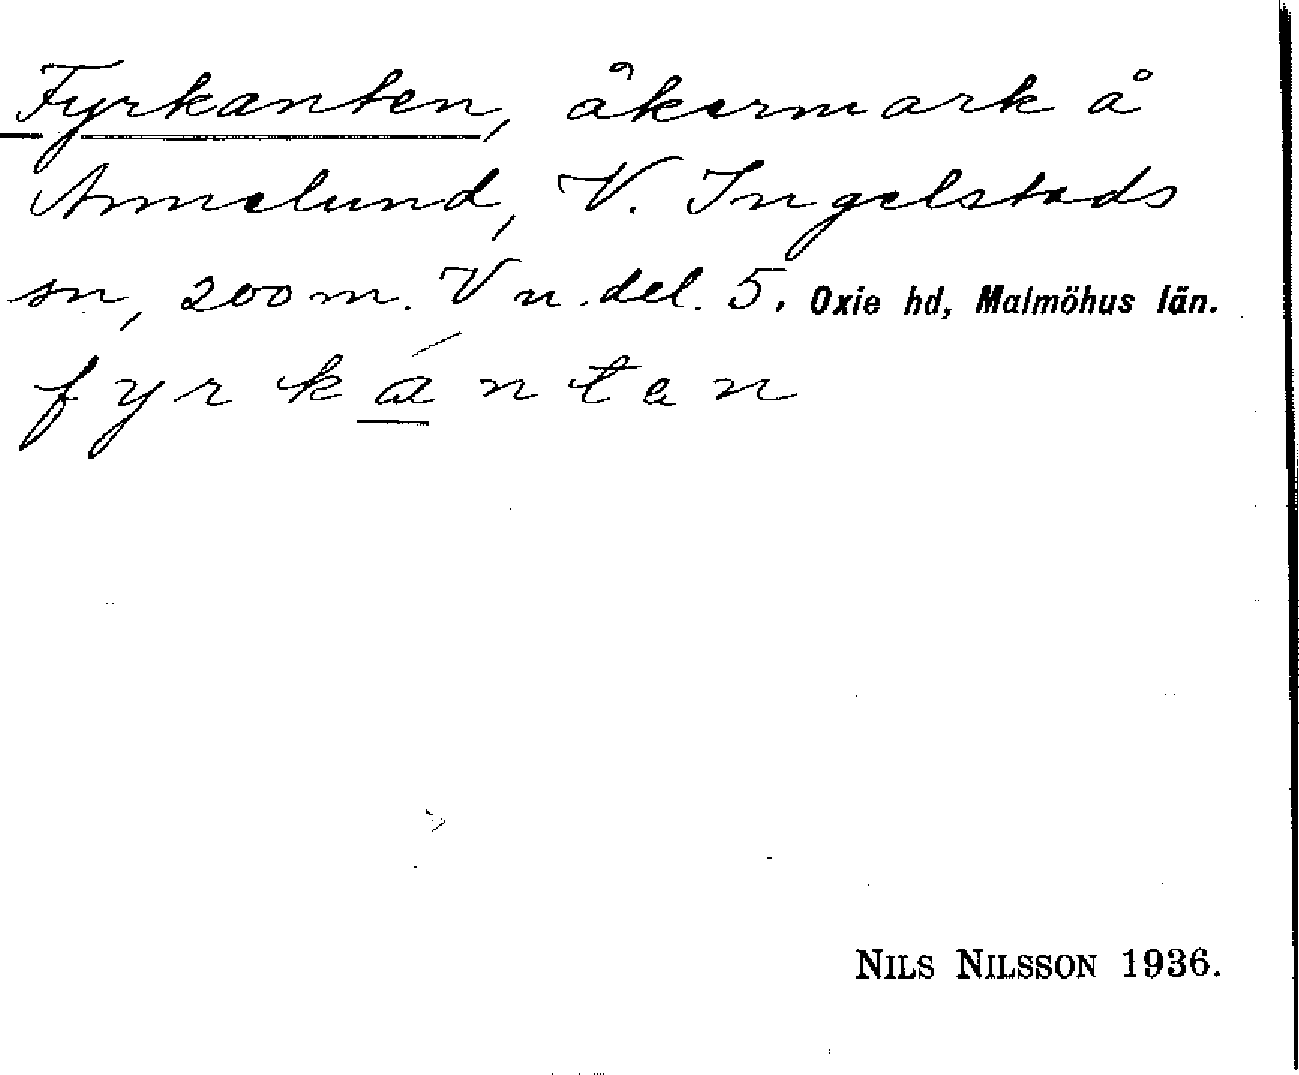 Fyrkanten, åkermark å
Annelund, V. Ingelstads
sn, 200 m. V n. del. 5. Oxie hd, Malmöhus län.
fyrkánten
NILS NILSSON 1936.